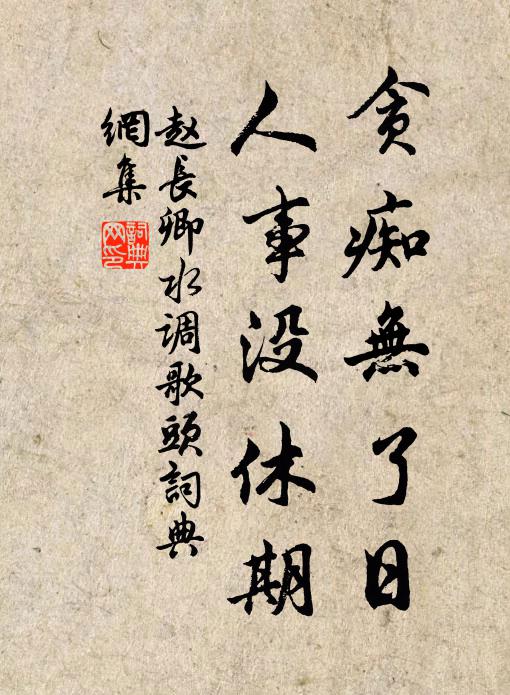 貪痴無了日
人事没休期
赵長卿水调歌頭詞典
網集
詞典
网印